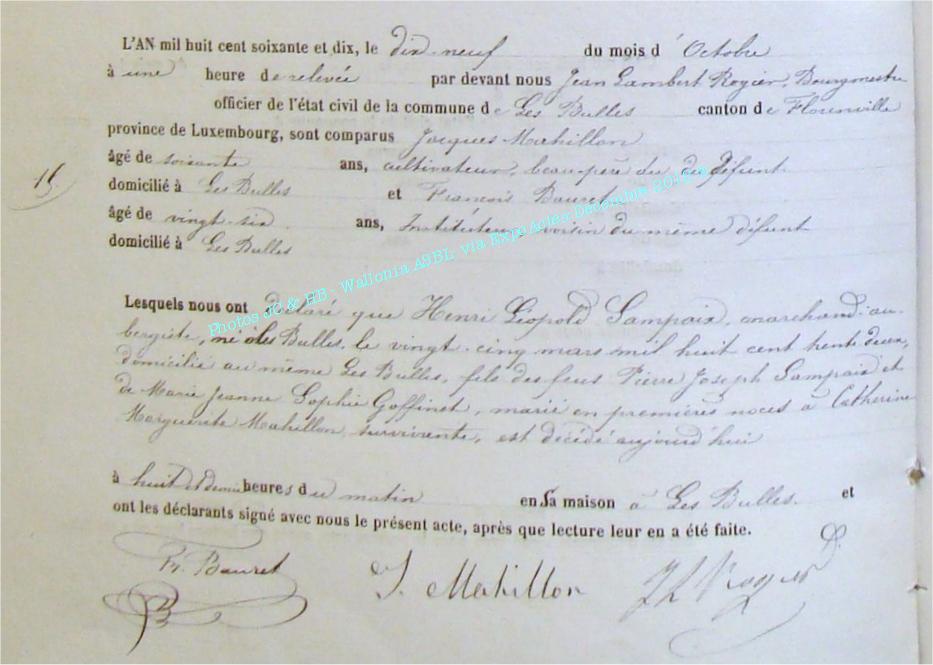 L'AN mil huit cent soixante et dix, le dix-neuf du mois d'Octobre
à une heure de relevée par devant nous Jean Lambert Rogier, Bourgmestre
officier de l'état civil de la commune de Les Bulles canton de Florenville
province de Luxembourg, sont comparus Jacques Mahillon
âgé de soixante ans, cultivateur, beau-père du défunt
15.
domicilié à Les Bulles et François Bauret
âgé de vingt-six ans, Instituteur, voisin du même défunt
domicilié à Les Bulles
Photos JC & HB - Wallonia ASBL via ExpoActes Décembre
Lesquels nous ont déclaré que Henri Léopold Sampaix, marchand-au-
bergiste, né à Les Bulles, le vingt-cinq mars mil huit cent trente deux,
domicilié au même Les Bulles, fils des feus Pierre Joseph Sampaix et
de Marie Jeanne Sophie Goffinet, marié en premières noces à Catherine
Marguerite Mahillon, survivante, est décédé aujourd'hui
à huit et demie heures du matin en sa maison à Les Bulles. et
ont les déclarants signé avec nous le présent acte, après que lecture leur en a été faite.
Fr. Bauret J. Mahillon JL Rogier